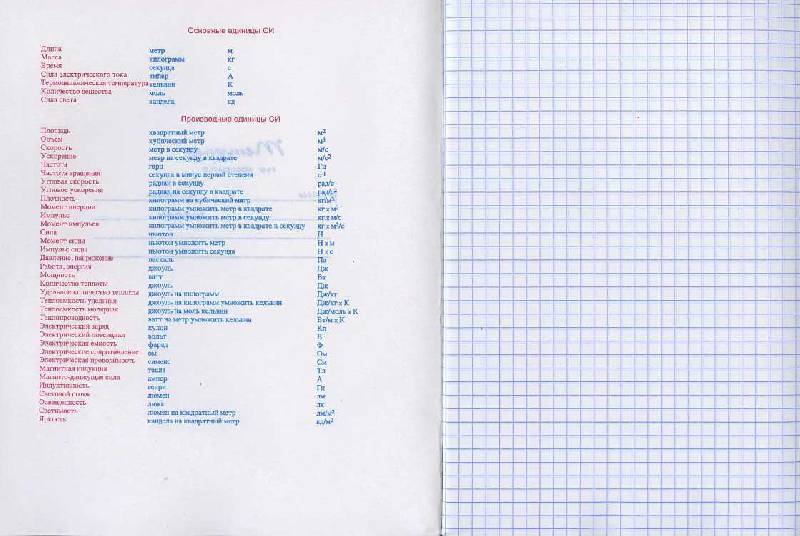 Основные единицы СИ
Длина метр м
Масса килограмм кг
Время секунда с
Сила электрического тока ампер А
Термодинамическая температура кельвин К
Количество вещества моль моль
Сила света кандела кд
Производные единицы СИ
Площадь квадратный метр м²
Объем кубический метр м³
Скорость метр в секунду м/с
Ускорение метр на секунду в квадрате м/с²
Частота герц Гц
Частота вращения секунда в минус первой степени с⁻¹
Угловая скорость радиан в секунду рад/с
Угловое ускорение радиан на секунду в квадрате рад/с²
Плотность килограмм на кубический метр кг/м³
Момент инерции килограмм умножить метр в квадрате кг х м²
Импульс килограмм умножить метр в секунду кг х м/с
Момент импульса килограмм умножить метр в квадрате в секунду кг х м²/с
Сила ньютон Н
Момент силы ньютон умножить метр Н х м
Импульс силы ньютон умножить секунда Н х с
Давление, напряжение паскаль Па
Работа, энергия джоуль Дж
Мощность ватт Вт
Количество теплоты джоуль Дж
Удельное количество теплоты джоуль на килограмм Дж/кг
Теплоемкость удельная джоуль на килограмм умножить кельвин Дж/кг х К
Теплоемкость молярная джоуль на моль кельвин Дж/моль х К
Теплопроводность ватт на метр умножить кельвин Вт/м х К
Электрический заряд кулон Кл
Электрический потенциал вольт В
Электрическая емкость фарад Ф
Электрическое сопротивление ом Ом
Электрическая проводимость сименс См
Магнитная индукция тесла Тл
Магнито-движущая сила ампер А
Индуктивность генри Гн
Световой поток люмен лм
Освещенность люкс лк
Светимость люмен на квадратный метр лм/м²
Яркость кандела на квадратный метр кд/м²